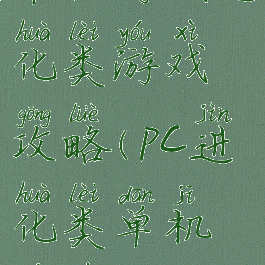 huà lèi yóu xì
化类游戏
gōng lüè jìn
攻略(PC进
huà lèi dān jī
化类单机